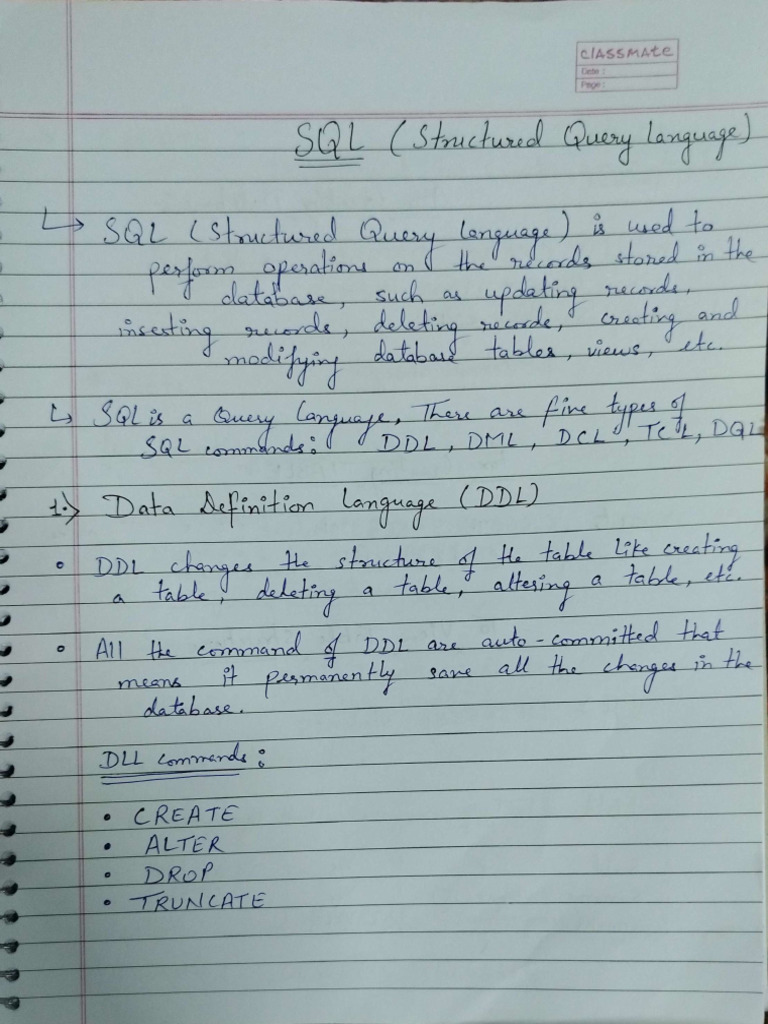 CLASSMATE
Date :
Page :
SQL (Structured Query Language)
↳ SQL (Structured Query Language) is used to
perform operations on the records stored in the
database, such as updating records,
inserting records, deleting records, creating and
modifying database tables, views, etc.
↳ SQL is a Query Language, There are five types of
SQL commands: DDL, DML, DCL, TCL, DQL
1.) Data Definition Language (DDL)
• DDL changes the structure of the table like creating
a table, deleting a table, altering a table, etc.
• All the command of DDL are auto-committed that
means it permanently save all the changes in the
database.
DLL commands:
• CREATE
• ALTER
• DROP
• TRUNCATE